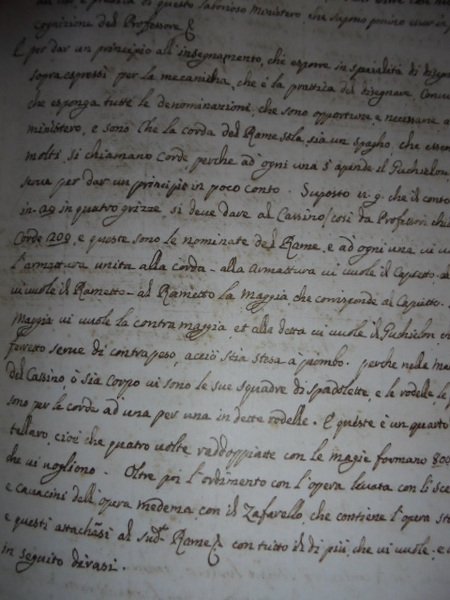 di questo laborioso Ministero, che sapono
Cognizione del Professore
E per dar un principio all'insegnamento, che espone in specialità di disegn
sopraespressi per la mecanicha, che è la prattica del disegnare Conv
che esponga tutte le denominazioni, che sono opportune, e necessarie a
ministero, e sono Che la corda del Rame sia un spagho, che
molti, si chiamano Corde perche ad ogni una s'apende il Guchielou,
serve per dar un principio in poco conto. Suposto v.g. che il conto
in 49 in quatro grizze si deve dare al Cassino (così da Professori chi
Corde 200, e queste sono le nominate del Rame, e ad ogni una vi v
l'armattura unita alla corda - alla armattura vi vuole il Capietto
vi vuole il Rametto - al Rametto la maggia che corrisponde al Capietto.
Maggia vi vuole la contra maggia, et alla detta vi vuole il Guchielon
ferretto serve di contrapeso, acciò stia stesa a piombo. perche nella
del Cassino, ò sia Corpo vi sono le sue squadre di Spadolette, e le rodelle le
sono per le corde ad una per una in dette rodelle. E queste è un quarto
tellaro, cioè che quatro volte reddoppiatte con le magie formano 800
che vi vogliono. Oltre poi l'ordimento con l'opera levata con li
e cavacini dell'opera medema con il Zafarello, che contiene l'opera
e questi attachasi al Sud.o Rame, con tutto il di più, che vi vuole. e
in seguito dirasi.